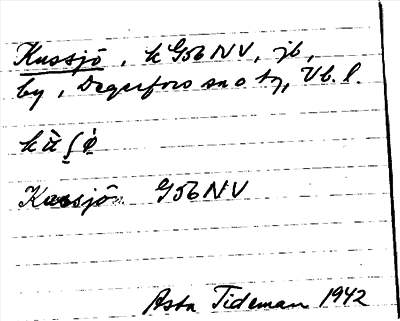 Kussjö, k G56NV, jb,
by, Degerfors sn o tg, Vb. l.
Kussjön G56NV
Asta Tideman 1942